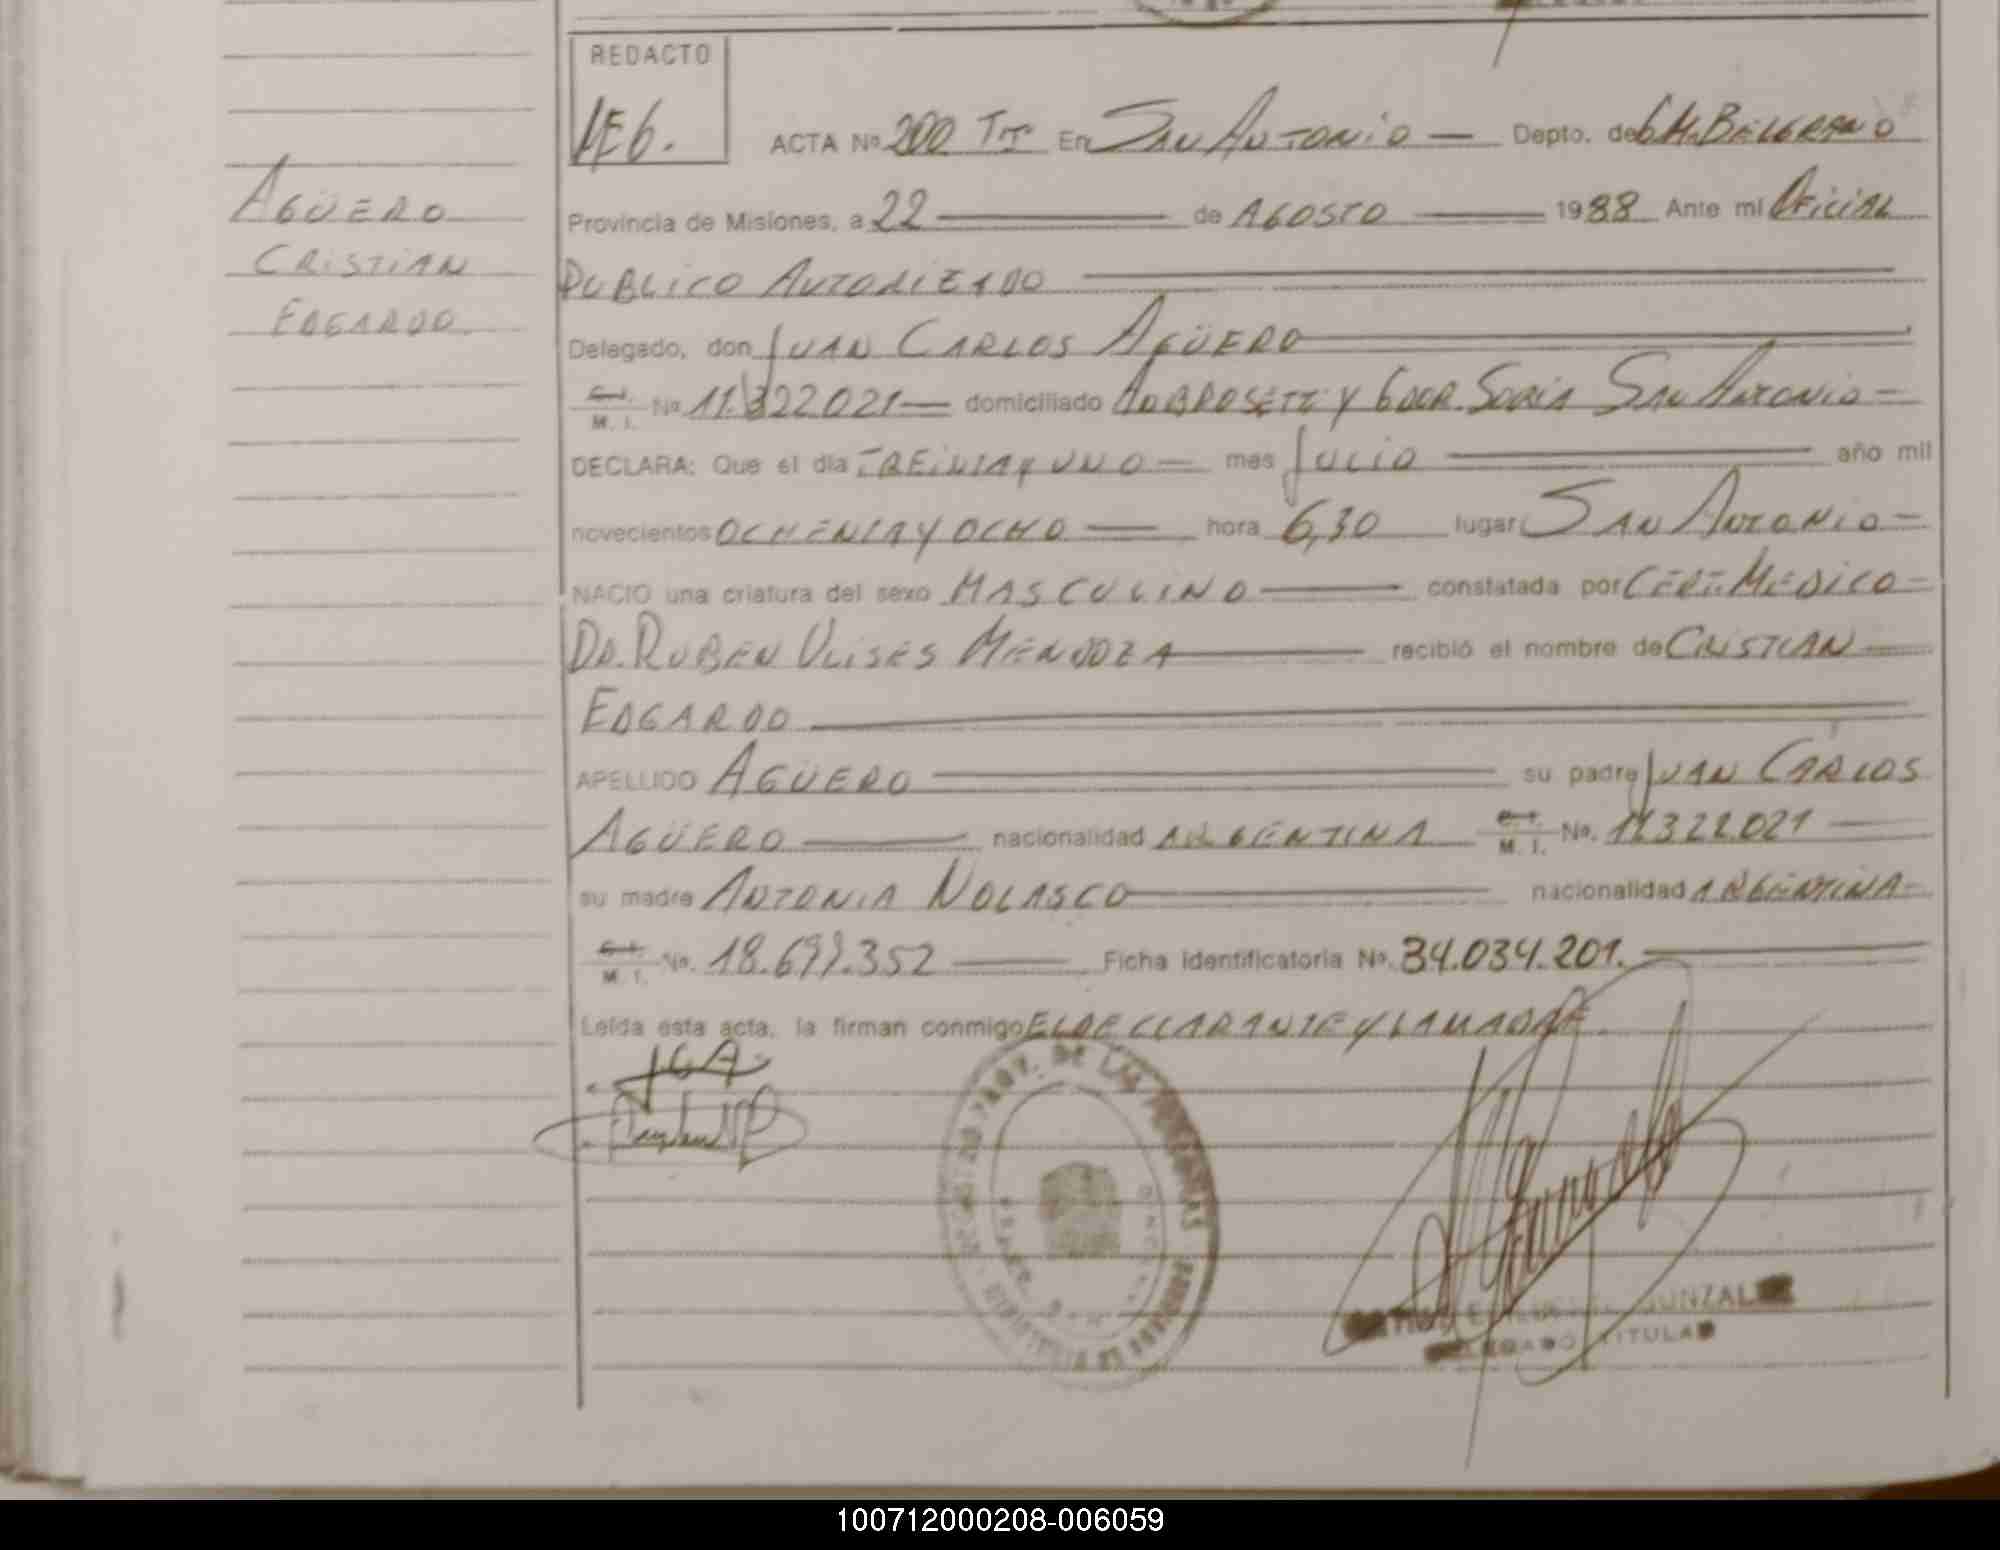 REDACTO
AGÜERO
CRISTIAN
EDGARDO
ACTA Nº 200 TºI En SAN ANTONIO — Depto. de G.M.BELGRANO
Provincia de Misiones, a 22 — de AGOSTO — 1988 Ante mi OFICIAL
PUBLICO AUTORIZADO
Delegado, don JUAN CARLOS AGÜERO
C.I. M. I. Nº 11.322.021 — domiciliado AMBROSETTI Y GDOR. SORIA SAN ANTONIO —
DECLARA: Que el día TREINTA Y UNO — mes JULIO — año mil
novecientos OCHENTA Y OCHO — hora 6,30 lugar SAN ANTONIO —
NACIO una criatura del sexo MASCULINO — constatada por CERT. MEDICO —
DR. RUBEN ULISES MENDOZA — recibió el nombre de CRISTIAN
EDGARDO
APELLIDO AGÜERO — su padre JUAN CARLOS
AGÜERO — nacionalidad ARGENTINA — C.I. M. I. No. 11.322.021 —
su madre ANTONIA NOLASCO — nacionalidad ARGENTINA —
C.I. M. I. No. 18.699.352 — Ficha identificatoria Nº 34.034.201. —
Leída esta acta, la firman conmigo EL DECLARANTE Y LA MADRE
JCA
PROV. DE
GONZAL
TITULA
100712000208-006059